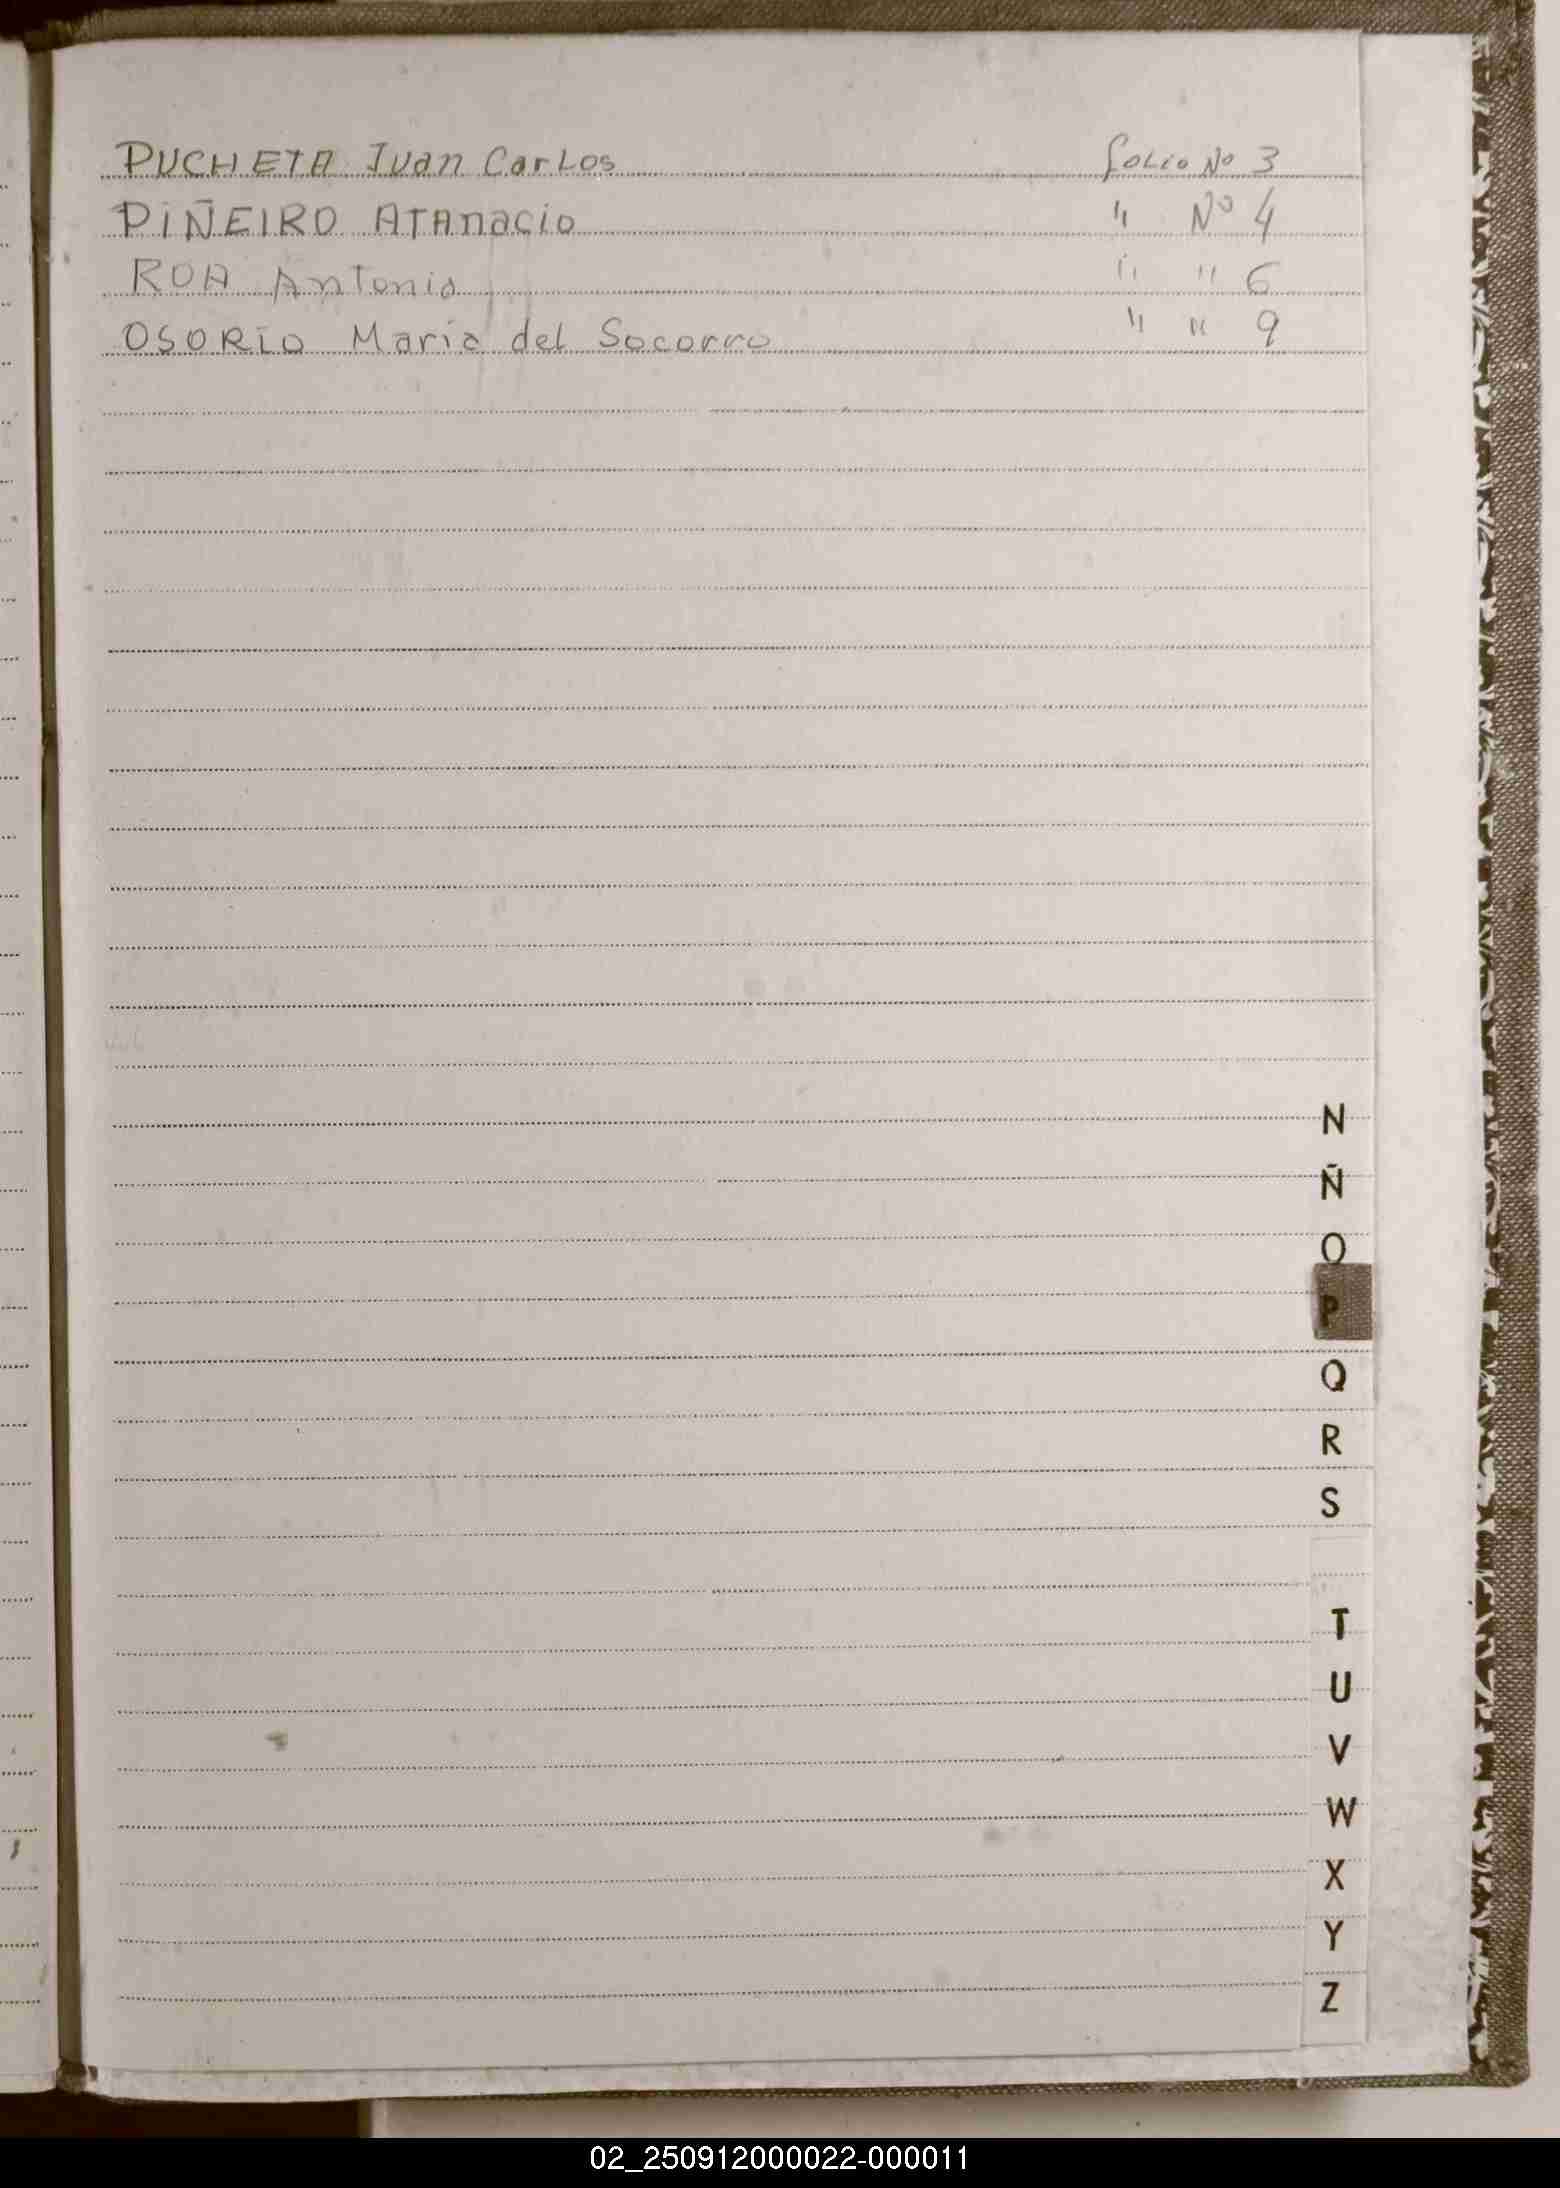 PUCHETA Juan Carlos folio No 3
PIÑEIRO Atanacio " Nº 4
ROA Antonio " " 6
OSORIO Maria del Socorro " " 9
N
Ñ
O
P
Q
R
S
T
U
V
W
X
Y
Z
02_250912000022-000011